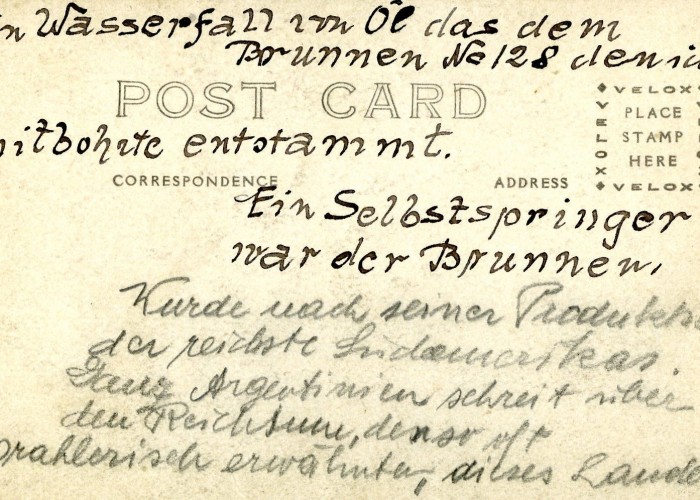 in Wasserfall von Öl das dem
Brunnen No 128 den ic
POST CARD
mitbohrte entstammt.
VELOX
VELOX
PLACE
STAMP
HERE
VELOX
CORRESPONDENCE
ADDRESS
Ein Selbstspringer
war der Brunnen,
Wurde nach seiner Produktio
der reichste Südamerikas.
Ganz Argentinien schreit über
den Reichtum, den so oft
prahlerisch erwähnten, dieses Lande